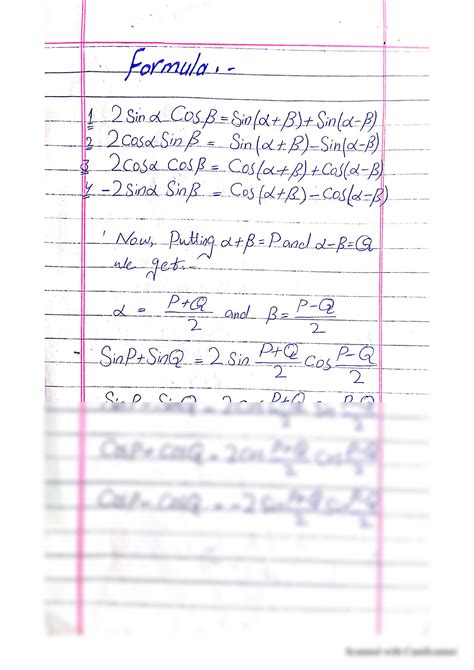 Formula :-
1 2 Sin α Cos β = Sin(α+β) + Sin(α-β)
2 2 Cosα Sin β = Sin(α+β) - Sin(α-β)
3 2 Cosα Cosβ = Cos(α+β) + Cos(α-β)
4 -2 Sinα Sinβ = Cos(α+β) - Cos(α-β)
Now, Putting α+β = P and α-β = Q
we get:-
α = P+Q/2 and β = P-Q/2
SinP + SinQ = 2 Sin P+Q/2 Cos P-Q/2
CosP + CosQ = 2 Cos P+Q/2 Cos P-Q/2
CosP - CosQ = -2 Sin P+Q/2 Sin P-Q/2
Scanned with CamScanner